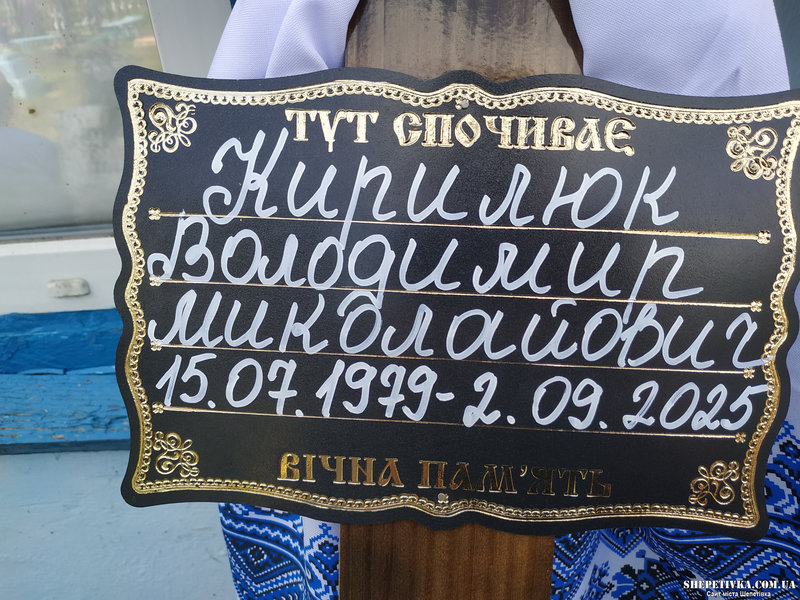 ТУТ СПОЧИВАЄ
Кирилюк
Володимир
Миколайович
15.07.1979-2.09.2025
ВІЧНА ПАМ'ЯТЬ
SHEPETIVKA.COM.UA
Сайт міста Шепетівка